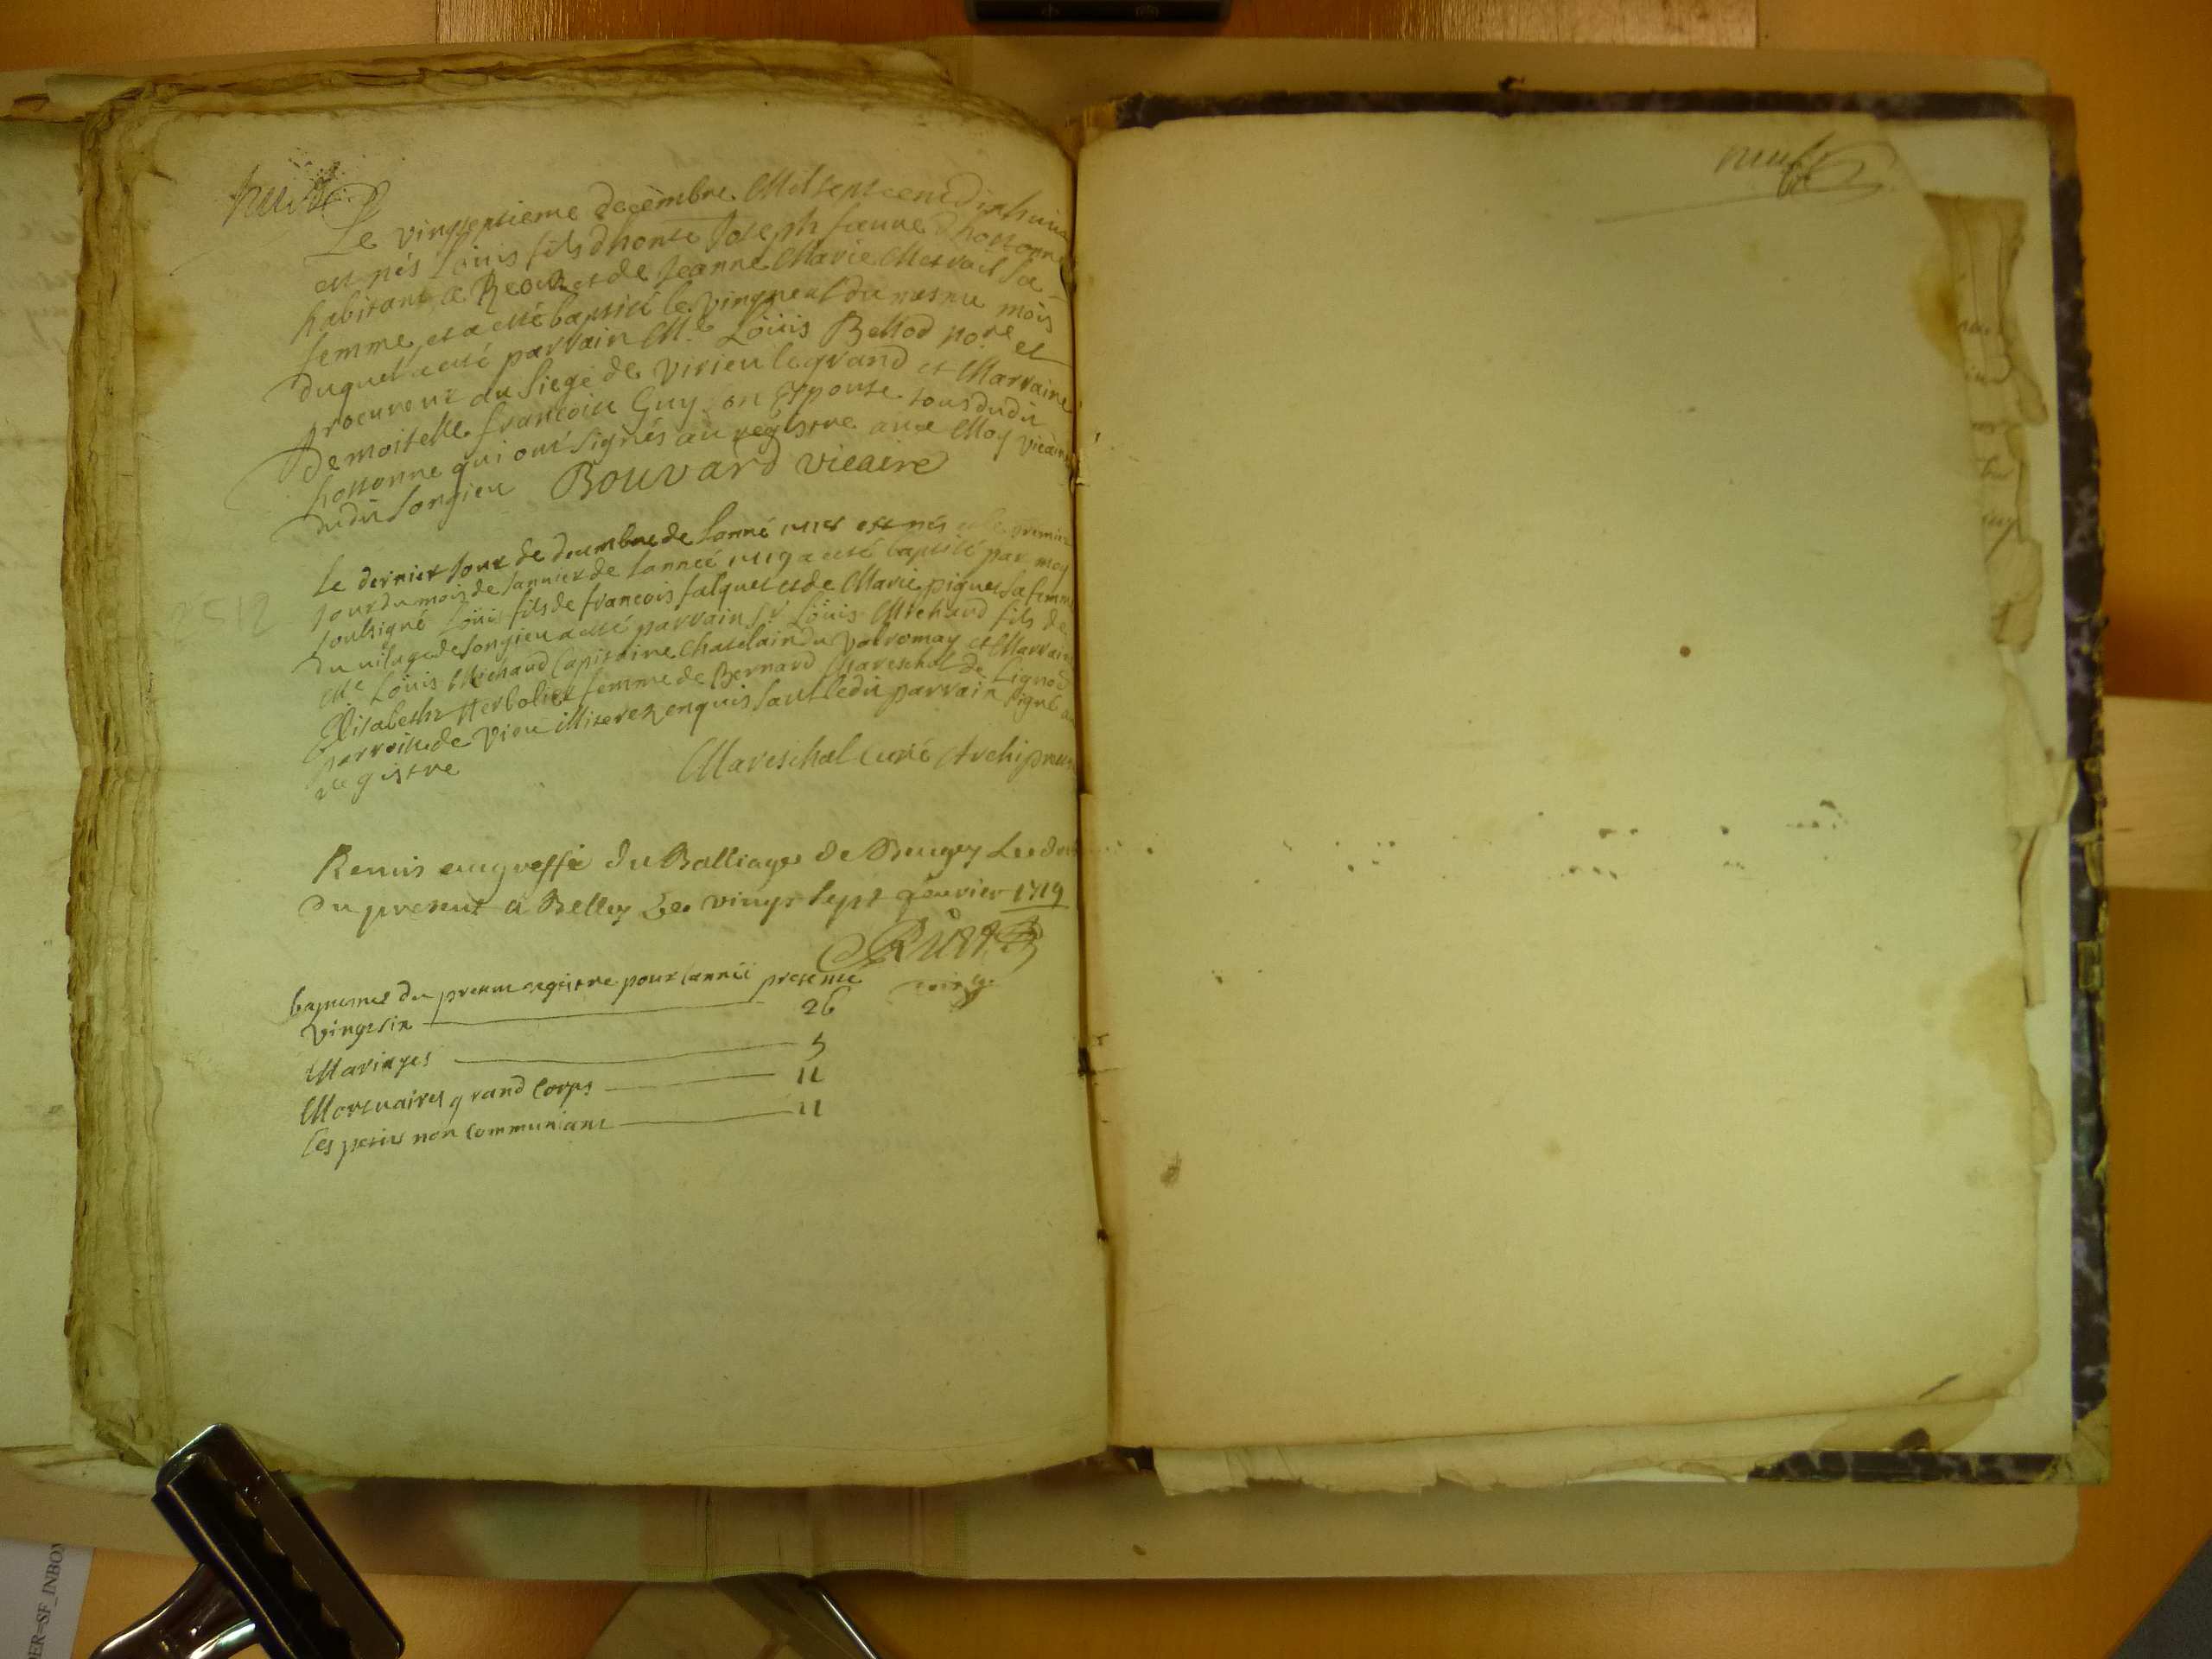 huit
Le vingtseptieme decembre Mil sept cent dix huit
est nés Louis fils dhonte Joseph faure dhostonne
habitant a et de Jeanne Marie Mervail sa
femme et a esté baptisé le vingneuf du mesme mois
duquel a esté parrain Me Louis Bellod nore et
procureur au siege de virieu le grand et Marraine
Demoiselle francoise Guy son Epouse tous dudit
hostonne qui ont signés au registre avec Moy vicaire
dudit songieu Bouvard vicaire
Le dernier jour de decembre de lanné 1718 est nés et le premier
jour du mois de Janvier de lanneé 1719 a esté baptisé par moy
soubsigné Louis fils de francois falquet et de Marie piquet sa femme
du vilage de songieu a esté parrain Sr Louis Michaud fils de
Me Louis Michaud Capitaine Chatelain du valromay et Marraine
Elisabeth Herbolier femme de Bernard Mareschal de Lignod
parroisse de vieu illiterez enquis sauf ledit parrain signé au
registre
Mareschal curé Archipretre
Remis au greffe du Balliage de Beugey Le double
du present a Belley Le vingt sept Janvier 1719
baptemes du present registre pour lanneé presente
vingt six 26
Mariages 5
Mortuaires grand Corps 11
les petits non communiant 11
neuf